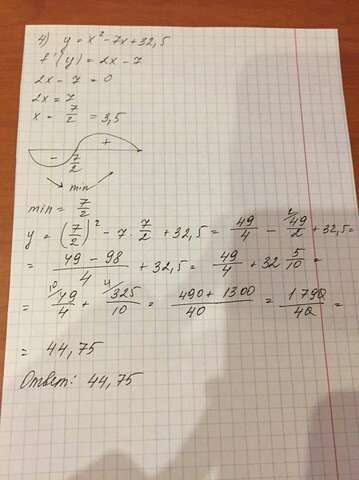 4) y = x² - 7x + 32,5
f'(y) = 2x - 7
2x - 7 = 0
2x = 7
x = 7/2 = 3,5
- +
7/2
min
min = 7/2
y = (7/2)² - 7 · 7/2 + 32,5 = 49/4 - 49/2 + 32,5 =
= (49 - 98)/4 + 32,5 = 49/4 + 32 5/10 =
= 49/4 + 325/10 = (490 + 1300)/40 = 1790/40 =
= 44,75
Ответ: 44,75